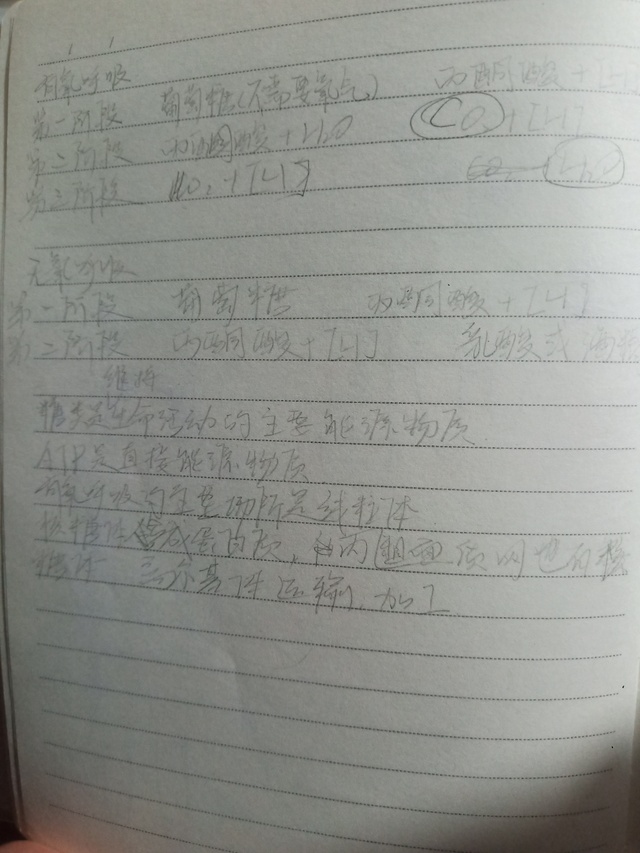 有氧呼吸
第一阶段 葡萄糖(不需要氧气) 丙酮酸+[H]
第二阶段 丙酮酸+H2O CO2+[H]
第三阶段 O2+[H] H2O
无氧呼吸
第一阶段 葡萄糖 丙酮酸+[H]
第二阶段 丙酮酸+[H] 乳酸或酒精
维持
糖类是生命活动的主要能源物质
ATP是直接能源物质
有氧呼吸的主要场所是线粒体
核糖体 合成蛋白质, 内 质网也有核
糖体 高尔基体运输、加工